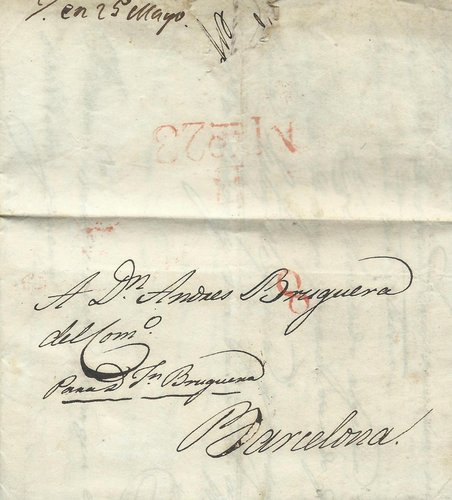 en 25 Mayo.
Mzo 23
8
A Dn. Andres Bruguera
del Como.
Para D Jn Bruguera
Barcelona.